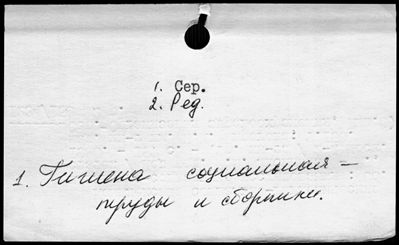 1. Сер.
2. Ред.
1. Гигиена социальная —
труды и сборники.